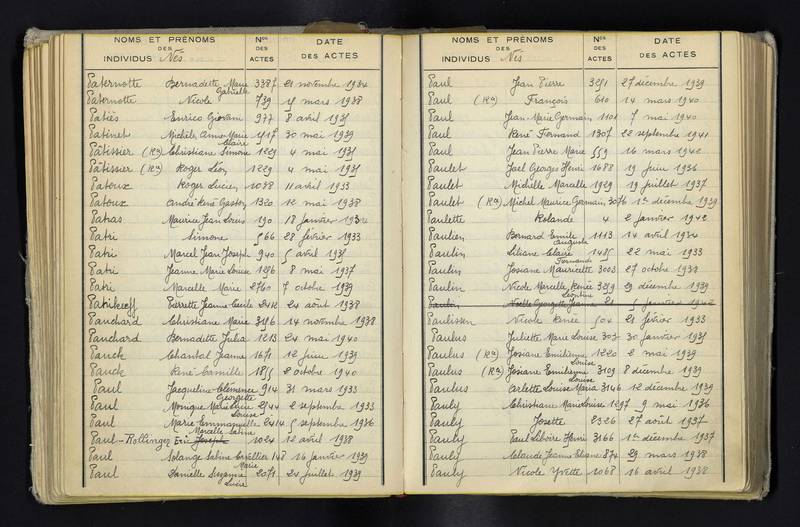 NOMS ET PRÉNOMS DES INDIVIDUS Nés Nos DES ACTES DATE DES ACTES
Paternotte Bernadette Marie Gabrielle 3387 21 novembre 1934
Paternotte Nicole 739 15 mars 1938
Patiès Enrico Giovani 977 8 avril 1935
Patinet Michèle Anne Marie Claire 1517 30 mai 1939
Pâtissier (Ra) Christiane Simone 1229 4 mai 1935
Pâtissier (Ra) Roger Léon 1229 4 mai 1935
Patoux Roger Lucien 1088 11 avril 1933
Patoux André René Gaston 1320 12 mai 1938
Patras Maurice Jean Louis 190 18 janvier
Patri Simone 566 28 février 1933
Patri Marcel Jean Joseph 940 5 avril 1935
Patri Jeanne Marie Louise 1256 8 mai 1937
Patri Marcelle Marie 2760 7 octobre 1939
Patrikeeff Pierrette Jeanne Cécile 2412 24 août 1938
Panchard Christiane Marie 3196 14 novembre 1938
Panchard Bernadette Julia 1213 24 mai 1940
Panck Chantal Jeanne 1671 12 juin 1939
Panck René Camille 1855 2 octobre 1940
Paul Jacqueline Clémence Georgette 914 31 mars 1933
Paul Monique Marie Lucie Louise 2544 2 septembre 1933
Paul Marie Emmanuelle Marcelle Sabine 2414 5 septembre 1936
Paul-Rollinger Eric Joseph 1024 12 avril 1938
Paul Solange Sabine 148 16 janvier 1939
Paul Danielle Suzanne Marie Lucie 2071 24 juillet 1939
NOMS ET PRÉNOMS DES INDIVIDUS Nés Nos DES ACTES DATE DES ACTES
Paul Jean Pierre 3251 27 décembre 1939
Paul (Ra) François 610 14 mars 1940
Paul Jean-Marie Germain 1101 7 mai 1940
Paul René Fernand 1307 22 septembre 1941
Paul Jean Pierre Marie 559 16 mars 1942
Paulet Joël Georges Henri 1688 19 juin 1936
Paulet Michelle Marcelle 1929 19 juillet 1937
Paulet (Ra) Michel Maurice Germain 3076 1er décembre 1939
Paulette Rolande 4 2 janvier 1942
Paulien Bernard Emile Auguste 1113 14 avril 1934
Paulin Liliane Claire 1485 22 mai 1933
Paulin Josiane Mauricette Fernande 3003 27 octobre 1938
Paulin Nicole Marcelle Renée Léontine 3259 29 décembre 1939
Paulin Noëlle Georgette Jeanne 21 5 janvier 1942
Paulissen Nicole Renée 504 21 février 1933
Paulus Juliette Marie Louise 303 30 janvier 1935
Paulus (Ra) Josiane Emilienne Louise 1220 2 mai 1939
Paulus (Ra) Josiane Emilienne Louise 3109 8 décembre 1939
Paulus Arlette Louise Maria 3146 12 décembre 1939
Pauly Christiane Marie Louise 1297 9 mai 1936
Pauly Josette 2326 27 août 1937
Pauly Paul Liboire Henri 3166 1er décembre 1937
Pauly Claude Jeanne Eliane 874 29 mars 1938
Pauly Nicole Yvette 1068 16 avril 1938